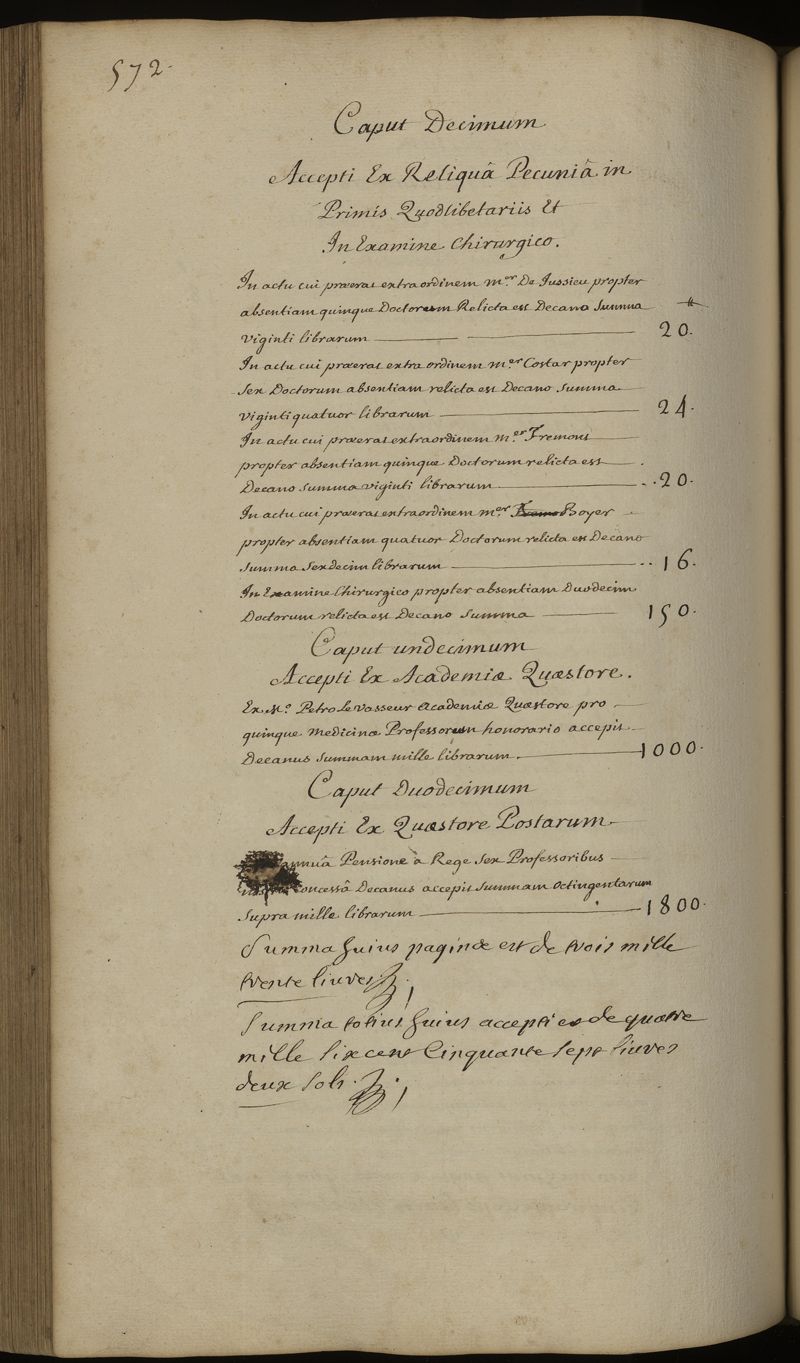 572.
Caput Decimum
Accepti Ex Reliquâ Pecuniâ in
Primis Quodlibetariis Et
In Examine Chirurgico.
In actu cui præerat extra ordinem M.er De Jussieu propter
absentiam quinque Doctorum Relicta est Decano Summa
viginti librarum 20.
In actu cui præerat extra ordinem M.er Costar propter
sex Doctorum absentiam relicta est Decano Summa
viginti quatuor librarum 24.
In actu cui præerat extraordinem M.er Fremont
propter absentiam quinque Doctorum relicta est
Decano Summa viginti librarum 20.
In actu cui præerat extraordinem M.er Boyer
propter absentiam quatuor Doctorum relicta est Decano
Summa Sexdecim librarum 16.
In Examine Chirurgico propter absentiam Duodecim
Doctorum relicta est Decano Summa 150.
Caput undecimum
Accepti Ex Academiæ Quæstore.
Ex M.o Petro Le Vasseur Academiæ Quæstore pro
quinque Medicinæ Professorum honorario accepit
Decanus Summam mille librarum. 1000.
Caput Duodecimum
Accepti Ex Quæstore Postarum
annuâ Pensione à Rege Sex Professoribus
concessâ Decanus accepit Summam Octingentarum
Supra mille librarum 1800.
Summa huius paginæ est de trois mille
trente livres.
Summa totius huius accepti est de quatre
mille six cent Cinquante sept livres
deux sols.